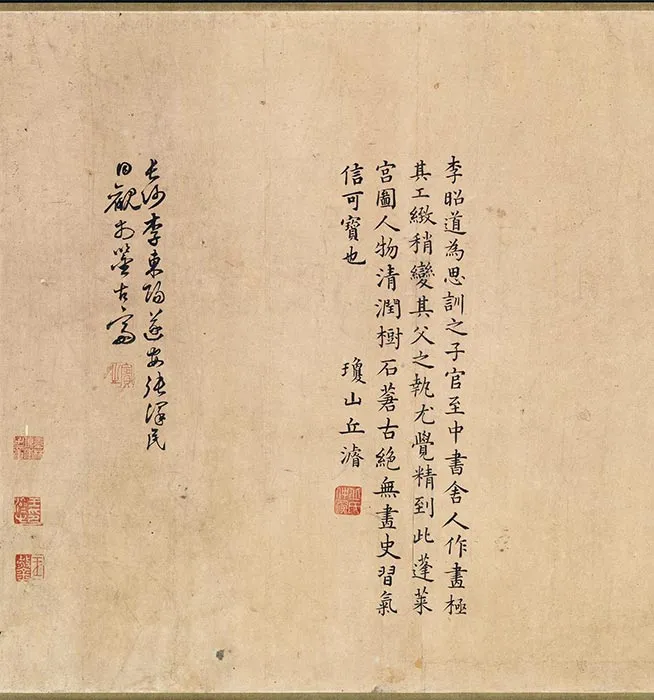 李昭道為思訓之子官至中書舍人作畫極
其工緻稍變其父之埶尤覺精到此蓬萊
宮圖人物清潤樹石蒼古絕無畫史習氣
信可寶也
瓊山丘濬
長沙李東陽遂安張澤民
同觀於鑒古齋